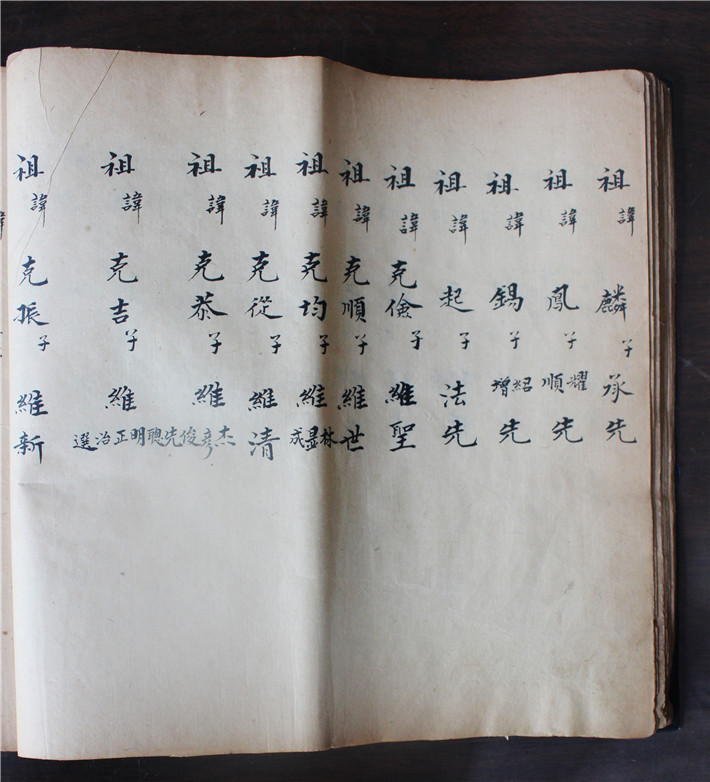 祖諱麟子承先
祖諱鳳子耀順先
祖諱錫子紹增先
祖諱起子法先
祖諱克儉子維聖
祖諱克順子維世
祖諱克均子維林成
祖諱克從子維清
祖諱克恭子維杰彥俊先
祖諱克吉子維聰明正治選
祖諱克振子維新